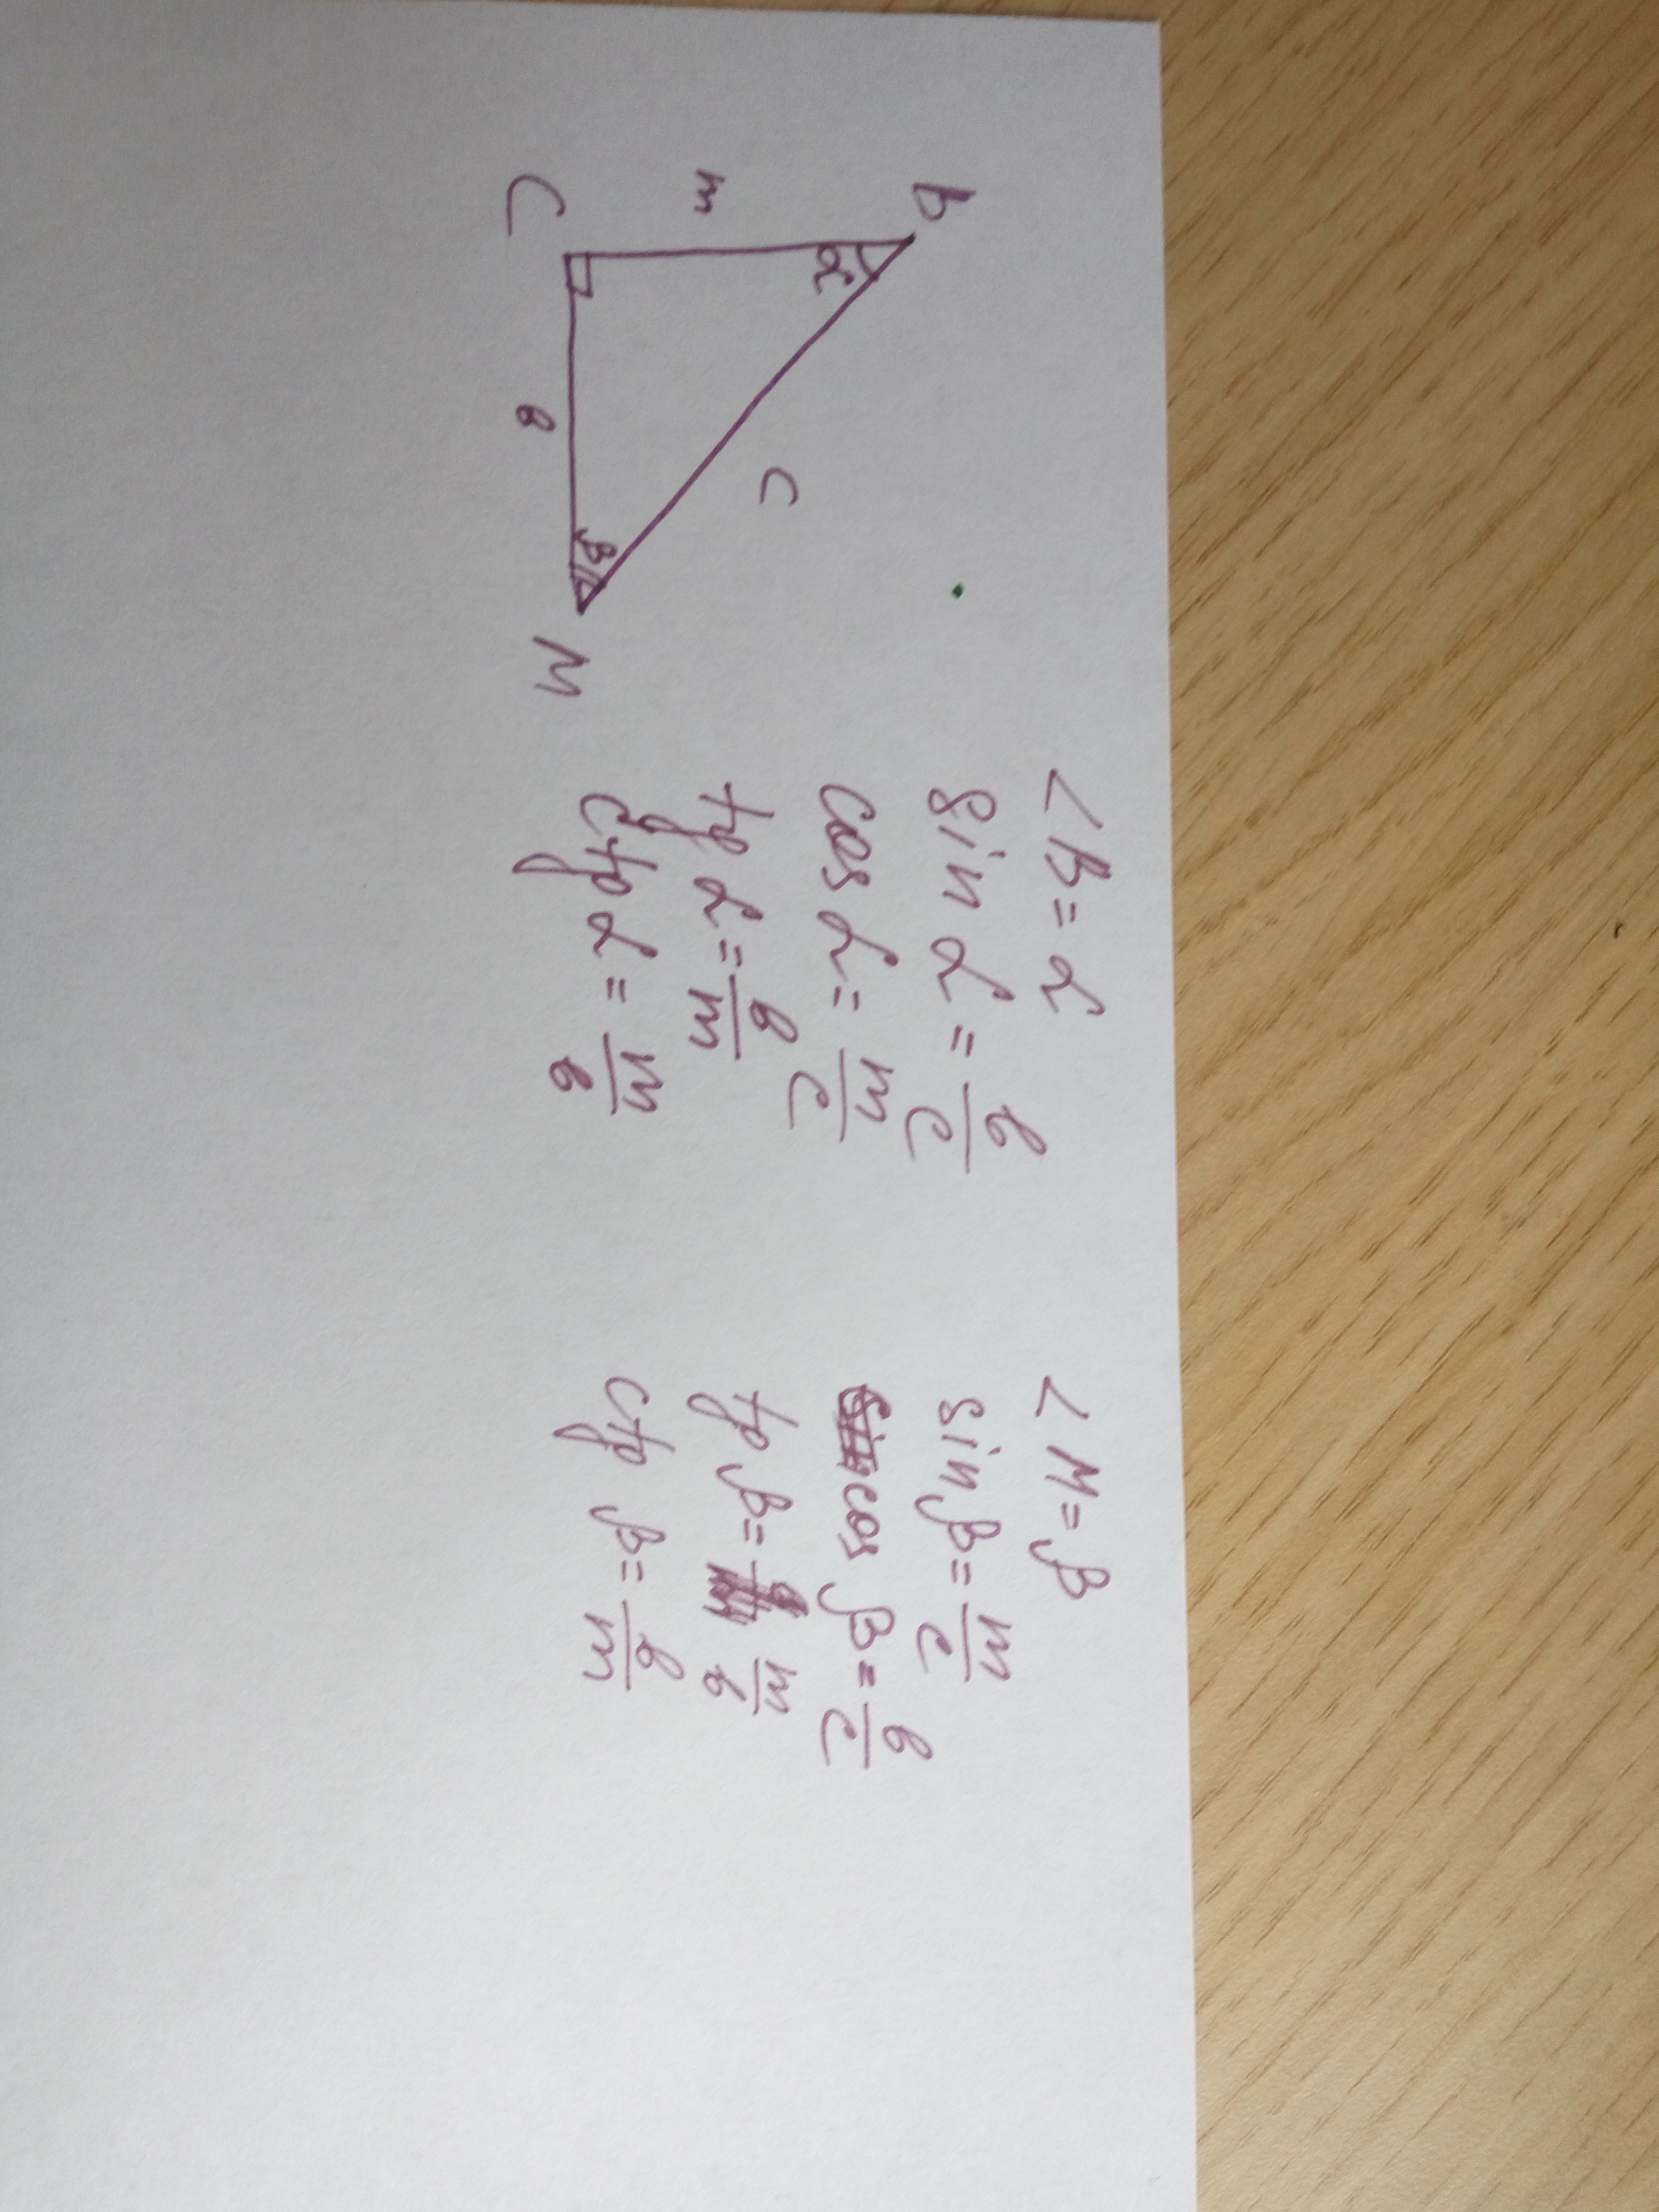 B
α
m
c
C
b
β
M
<B = α
sin α = b/c
cos α = m/c
tg α = b/m
ctg α = m/b
<M = β
sin β = m/c
cos β = b/c
tg β = m/b
ctg β = b/m